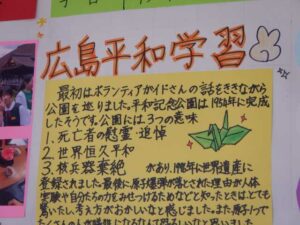 広島平和学習
最初はボランティアガイドさんの話をききながら
公園を巡りました。平和記念公園は1954年に完成
したそうです。公園には3つの意味
1.死亡者の慰霊・追悼
2.世界恒久平和
3.核兵器棄絶 があり、1996年に世界遺産に
登録されました。最後に原子爆弾が落とされた理由が人体
実験や自分たちの力をみせつけるためなどと知ったときはとても
驚いたし、考え方がおかしいなと感じました。また原子1つで